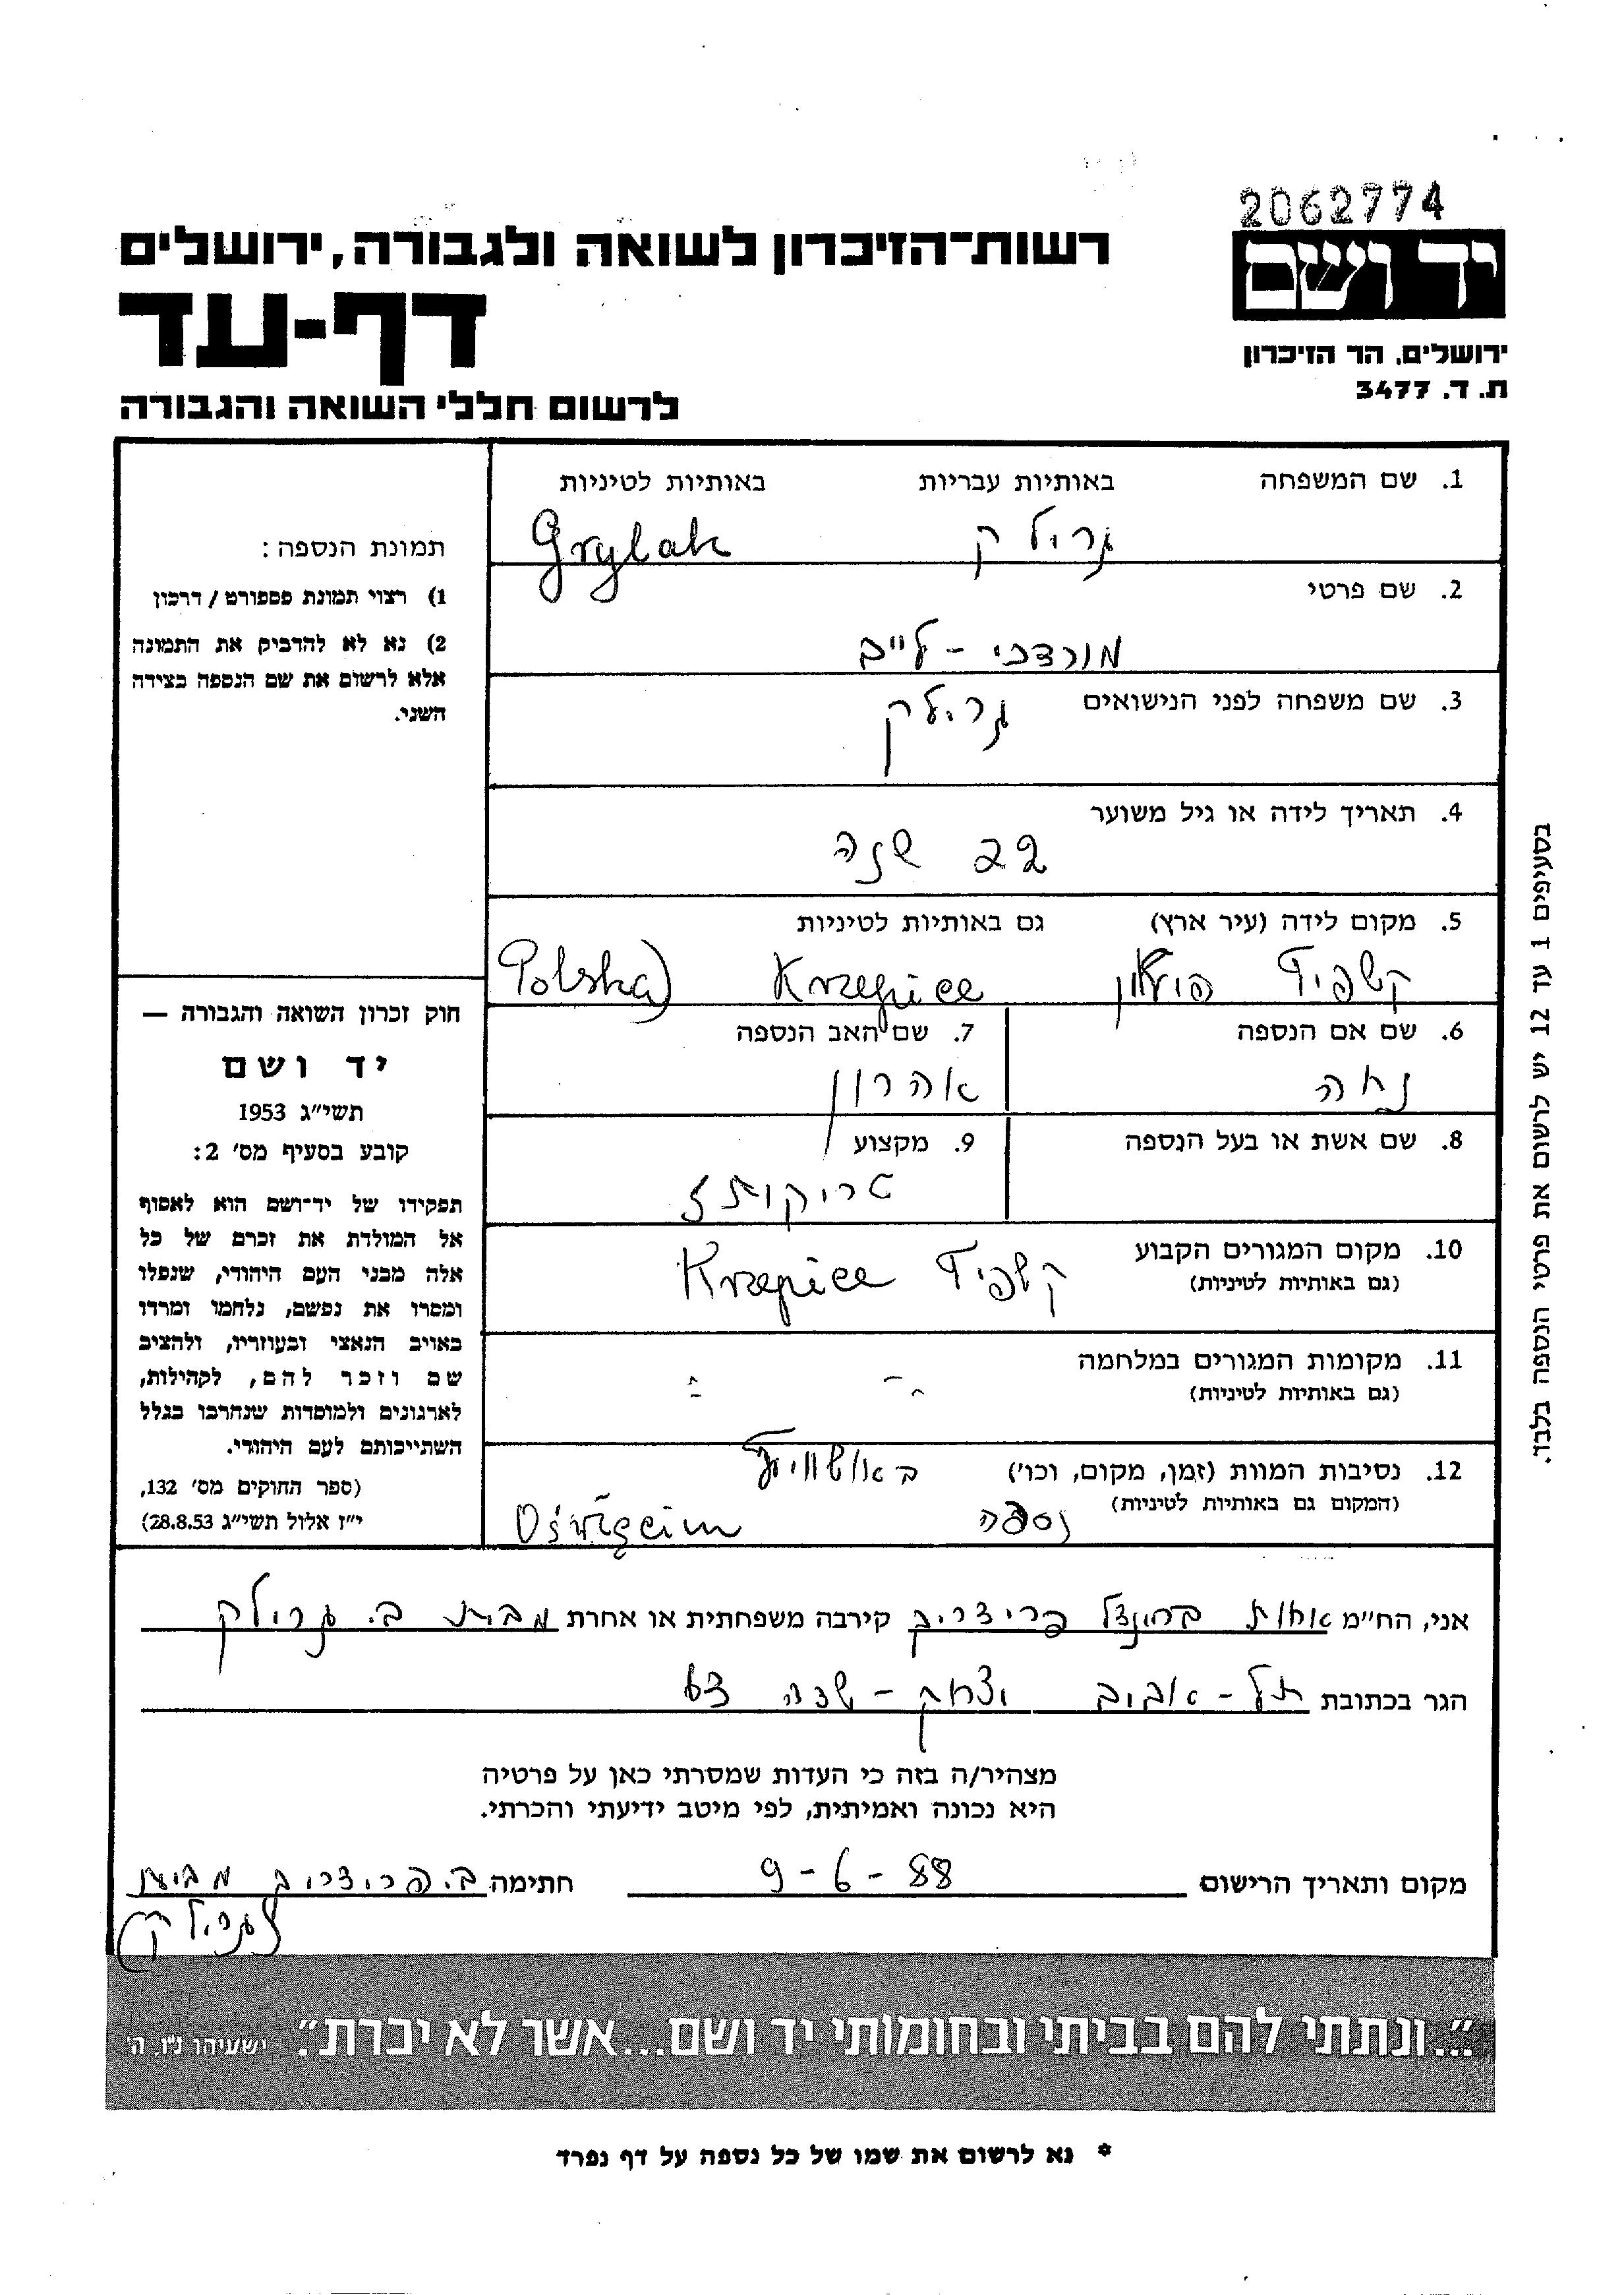 2062774
יד ושם
רשות-הזיכרון לשואה ולגבורה, ירושלים
דף-עד
ירושלים, הר הזיכרון
ת. ד. 3477
לרשום חללי השואה והגבורה
1. שם המשפחה באותיות עבריות באותיות לטיניות
גרילק Grylak
2. שם פרטי
מורדכי - לייב
3. שם משפחה לפני הנישואים
גרילק
4. תאריך לידה או גיל משוער
22 שנה
5. מקום לידה (עיר ארץ) גם באותיות לטיניות
קשפיץ פוילין Krzepice Polska)
6. שם אם הנספה
נחה
7. שם האב הנספה
אהרון
8. שם אשת או בעל הנספה
9. מקצוע
10. מקום המגורים הקבוע
(גם באותיות לטיניות)
קשפיץ Krzepice
11. מקומות המגורים במלחמה
(גם באותיות לטיניות)
12. נסיבות המוות (זמן, מקום, וכו')
(המקום גם באותיות לטיניות)
נספה
Oświęcim
תמונת הנספה:
1) רצוי תמונת פספורט / דרכון
2) נא לא להדביק את התמונה
אלא לרשום את שם הנספה בצידה
השני.
חוק זכרון השואה והגבורה —
יד ושם
תשי"ג 1953
קובע בסעיף מס' 2:
תפקידו של יד-ושם הוא לאסוף
אל המולדת את זכרם של כל
אלה מבני העם היהודי, שנפלו
ומסרו את נפשם, נלחמו ומרדו
באויב הנאצי ובעוזריו, ולהציב
שם וזכר להם, לקהילות,
לארגונים ולמוסדות שנחרבו בגלל
השתייכותם לעם היהודי.
(ספר החוקים מס' 132,
י"ז אלול תשי"ג 28.8.53)
בסעיפים 1 עד 12 יש לרשום את פרטי הנספה בלבד.
אני, הח"מ אחות פרידריב קירבה משפחתית או אחרת מבית ב. גרילק
הגר בכתובת תל-אביב יצחק-שדה 63
מצהיר/ה בזה כי העדות שמסרתי כאן על פרטיה
היא נכונה ואמיתית, לפי מיטב ידיעתי והכרתי.
מקום ותאריך הרישום 9-6-88 חתימה ב. פרידריב
גרילק)
"...ונתתי להם בביתי ובחומותי יד ושם...אשר לא יכרת". ישעיהו נ"ו, ה'
* נא לרשום את שמו של כל נספה על דף נפרד